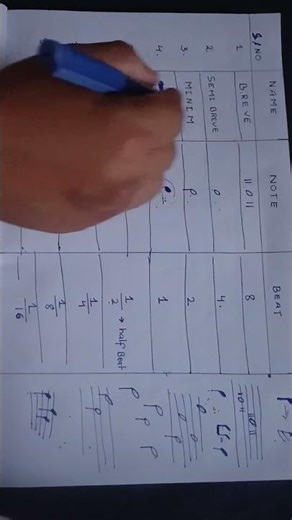 S/NO NAME NOTE BEAT
1. BREVE ||O|| 8
2. SEMIBREVE O 4.
3. MINIM 2
4. 1
1/2 → half Beat
1/4
1/8
1/16